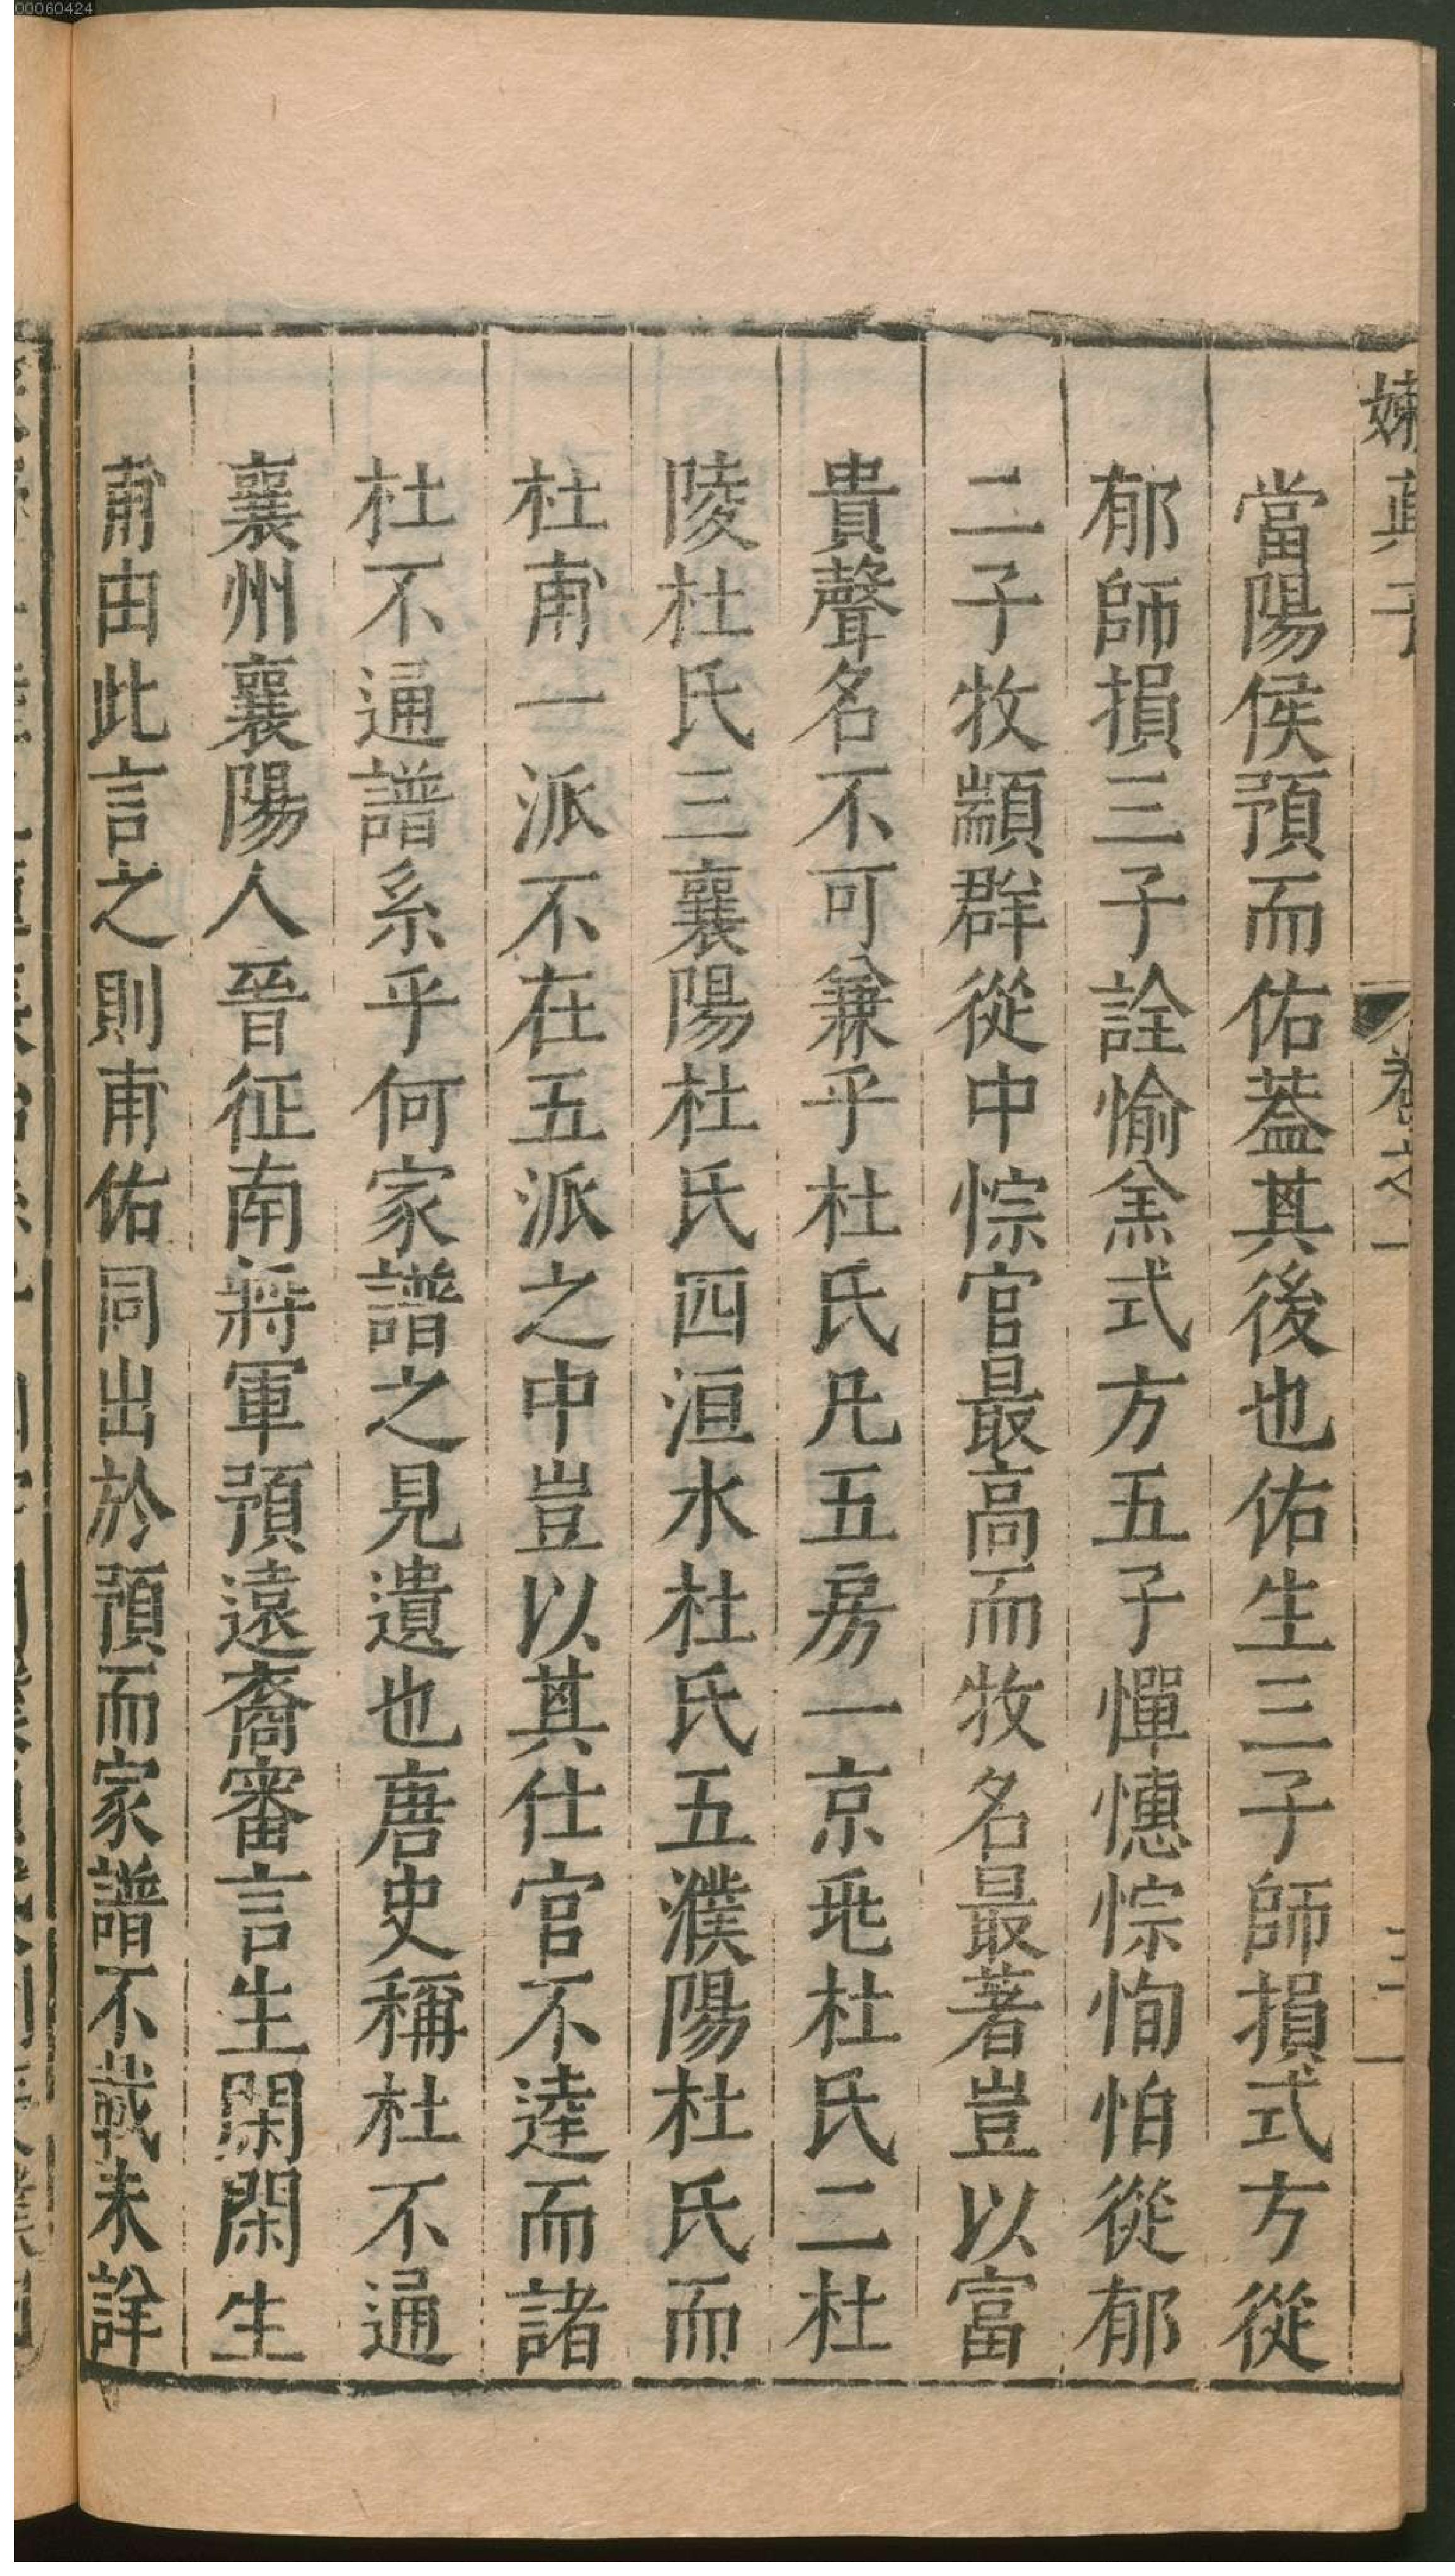 00060424
嬾真子 卷之一 三
當陽侯預而佑葢其後也佑生三子師損式方從
郁師損三子詮愉𠎀式方五子憚憓悰恂怕從郁
二子牧顓群從中悰官最高而牧名最著豈以富
貴聲名不可兼乎杜氏凡五房一京兆杜氏二杜
陵杜氏三襄陽杜氏四洹水杜氏五濮陽杜氏而
杜甫一派不在五派之中豈以其仕官不達而諸
杜不通譜系乎何家譜之見遺也唐史稱杜不通
襄州襄陽人晉征南將軍預遠裔審言生閑閑生
甫由此言之則甫佑同出於預而家譜不載未詳